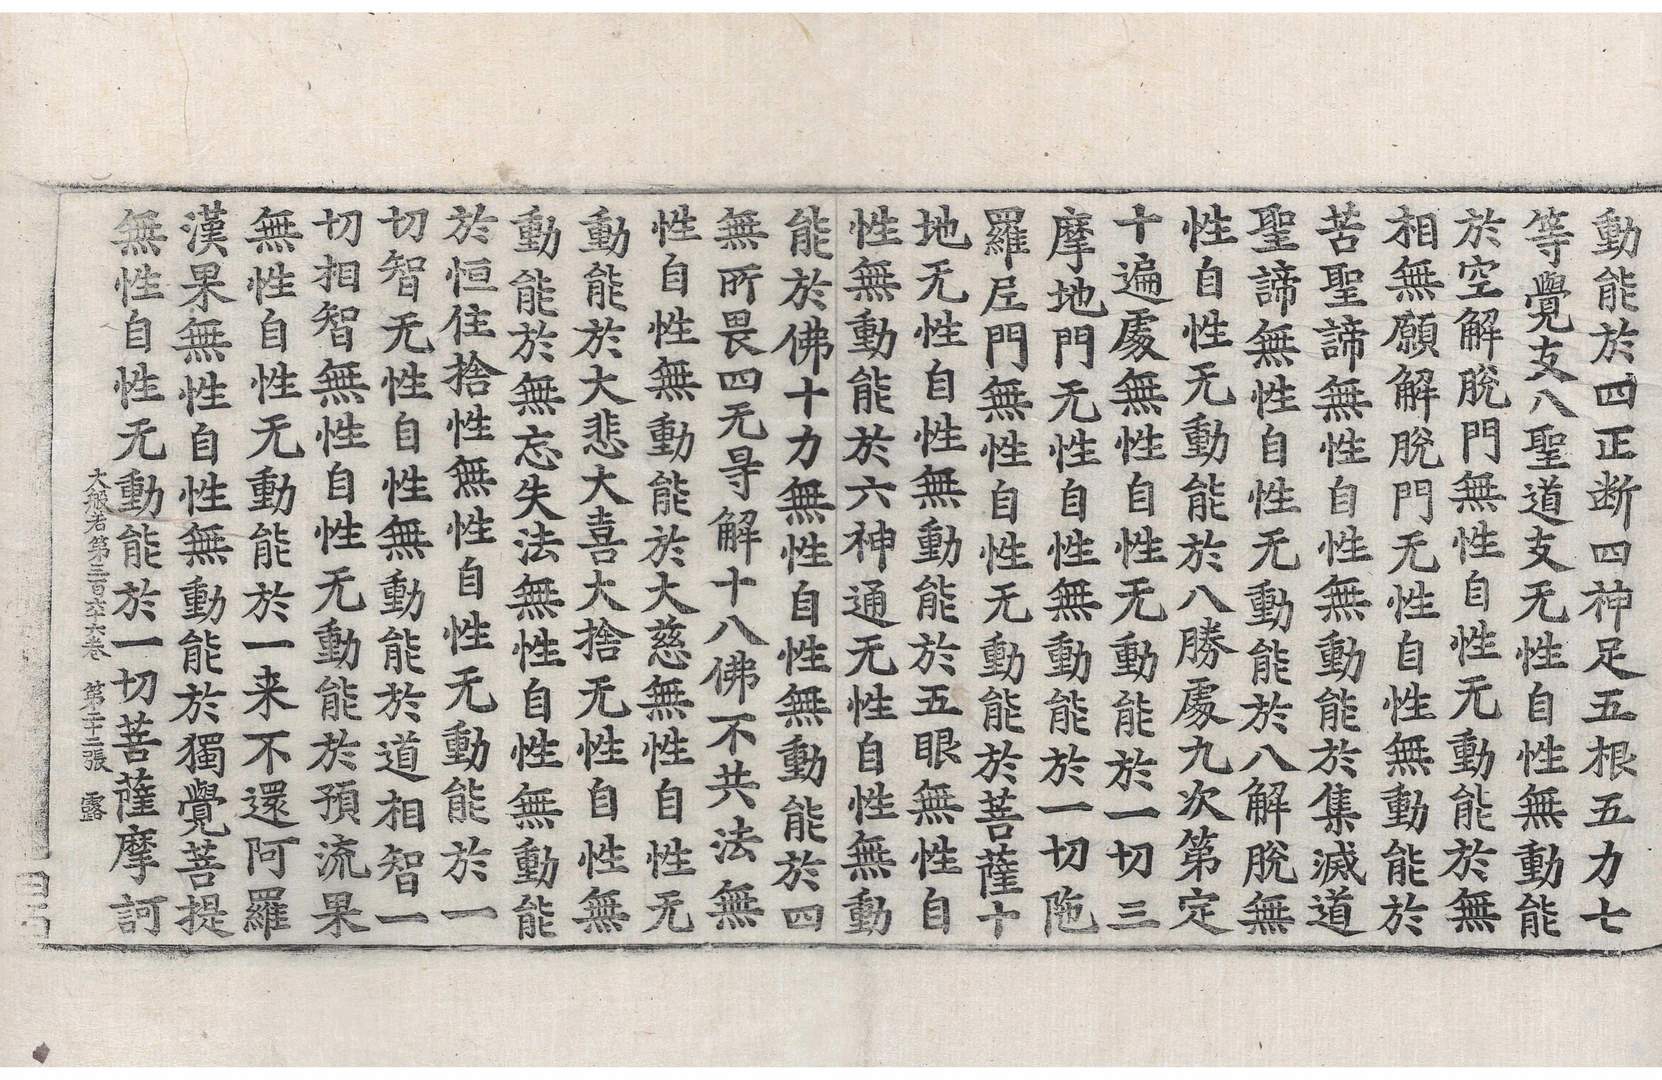 動能於四正断四神足五根五力七
等覺支八聖道支无性自性無動能
於空解脫門無性自性无動能於無
相無願解脫門无性自性無動能於
苦聖諦無性自性無動能於集滅道
聖諦無性自性无動能於八解脫無
性自性无動能於八勝處九次第定
十遍處無性自性无動能於一切三
摩地門无性自性無動能於一切陁
羅尼門無性自性无動能於菩薩十
地无性自性無動能於五眼無性自
性無動能於六神通无性自性無動
能於佛十力無性自性無動能於四
無所畏四无㝵解十八佛不共法無
性自性無動能於大慈無性自性无
動能於大悲大喜大捨无性自性無
動能於無忘失法無性自性無動能
於恒住捨性無性自性无動能於一
切智无性自性無動能於道相智一
切相智無性自性无動能於預流果
無性自性无動能於一来不還阿羅
漢果無性自性無動能於獨覺菩提
無性自性无動能於一切菩薩摩訶
大般若第三百六十六卷 第二十二張 露